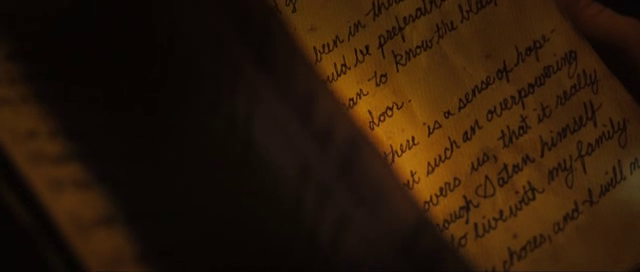 been in there
uld be preferable
an to know the
door.
there is a sense of hope-
et such an overpowering
overs us, that it really
hough Satan himself
to live with my family.
chores, and I will